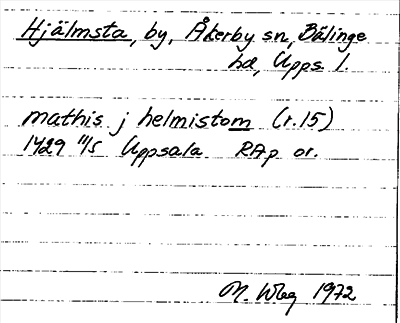 Hjälmsta, by, Åkerby sn, Bälinge
hd, Upps l.
mathis j helmistom (r.15)
1429 11/5 Uppsala RAp or.
M. Wbg 1972